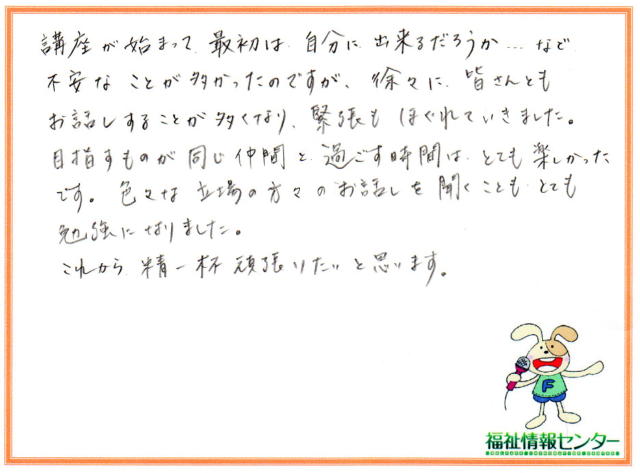 講座が始まって、最初は、自分に出来るだろうか…など
不安なことが多かったのですが、徐々に、皆さんとも
お話しすることが多くなり、緊張もほぐれていきました。
目指すものが同じ仲間と過ごす時間は、とても楽しかった
です。色々な立場の方々のお話しを聞くことも、とても
勉強になりました。
これから、精一杯頑張りたいと思います。
F
福祉情報センター